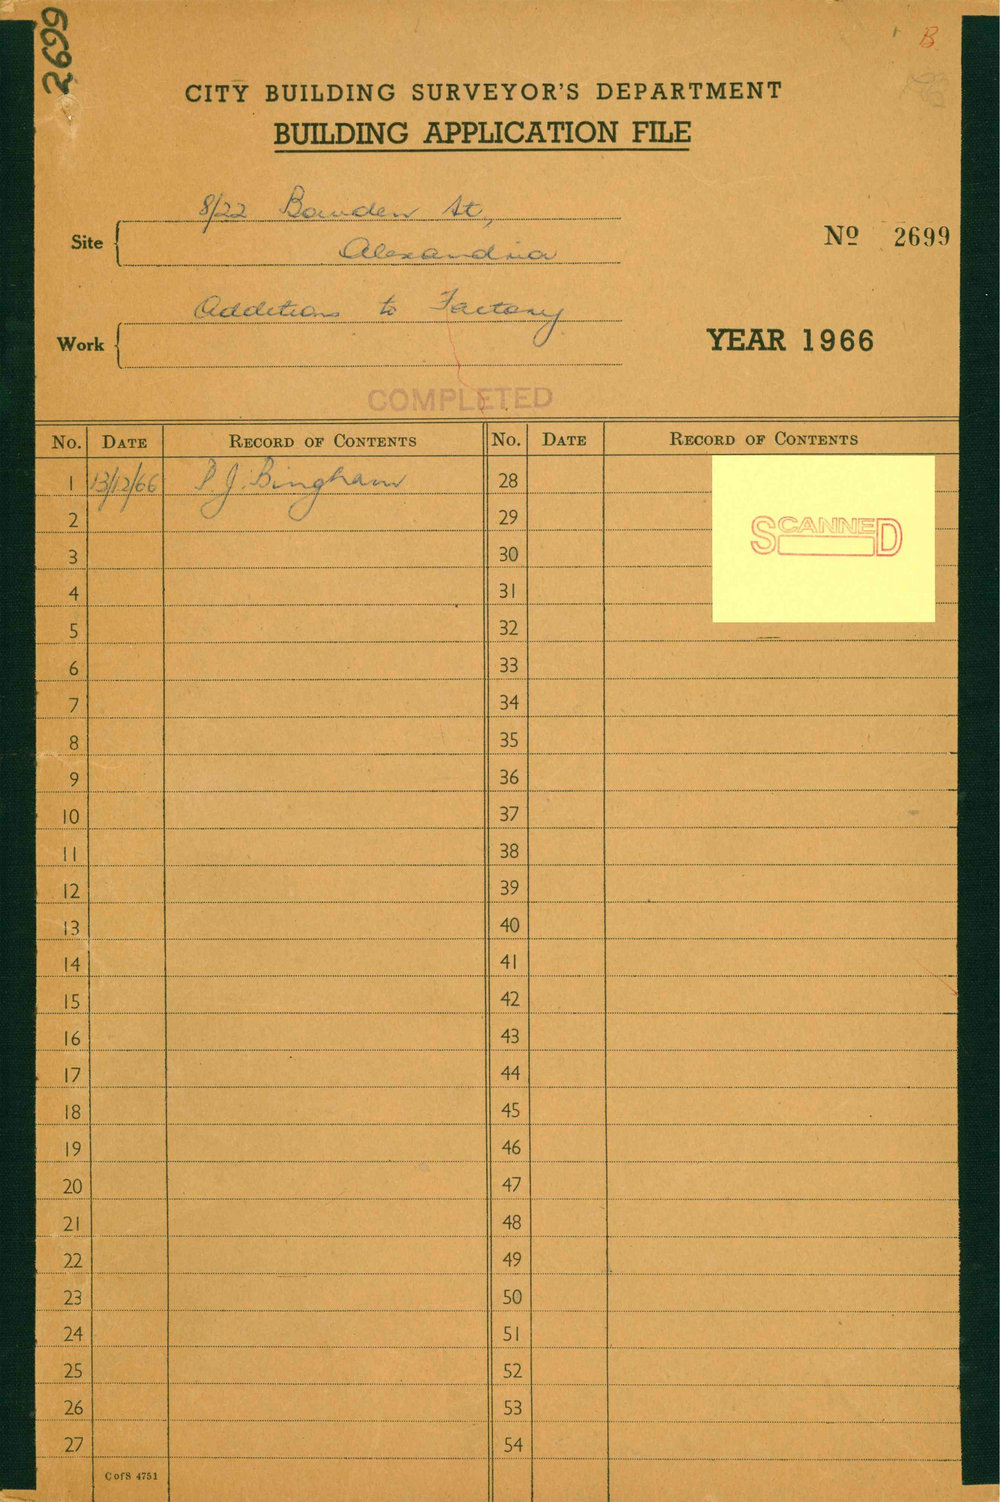 2699
B.
CITY BUILDING SURVEYOR'S DEPARTMENT
BUILDING APPLICATION FILE
Site
8/22 Bowden St,
Alexandria
No 2699
Work
Additions to Factory
YEAR 1966
COMPLETED
No. DATE RECORD OF CONTENTS No. DATE RECORD OF CONTENTS
1 13/12/66 P J. Bingham 28
SCANNED
2 29
3 30
4 31
5 32
6 33
7 34
8 35
9 36
10 37
11 38
12 39
13 40
14 41
15 42
16 43
17 44
18 45
19 46
20 47
21 48
22 49
23 50
24 51
25 52
26 53
27 54
C of S 4751